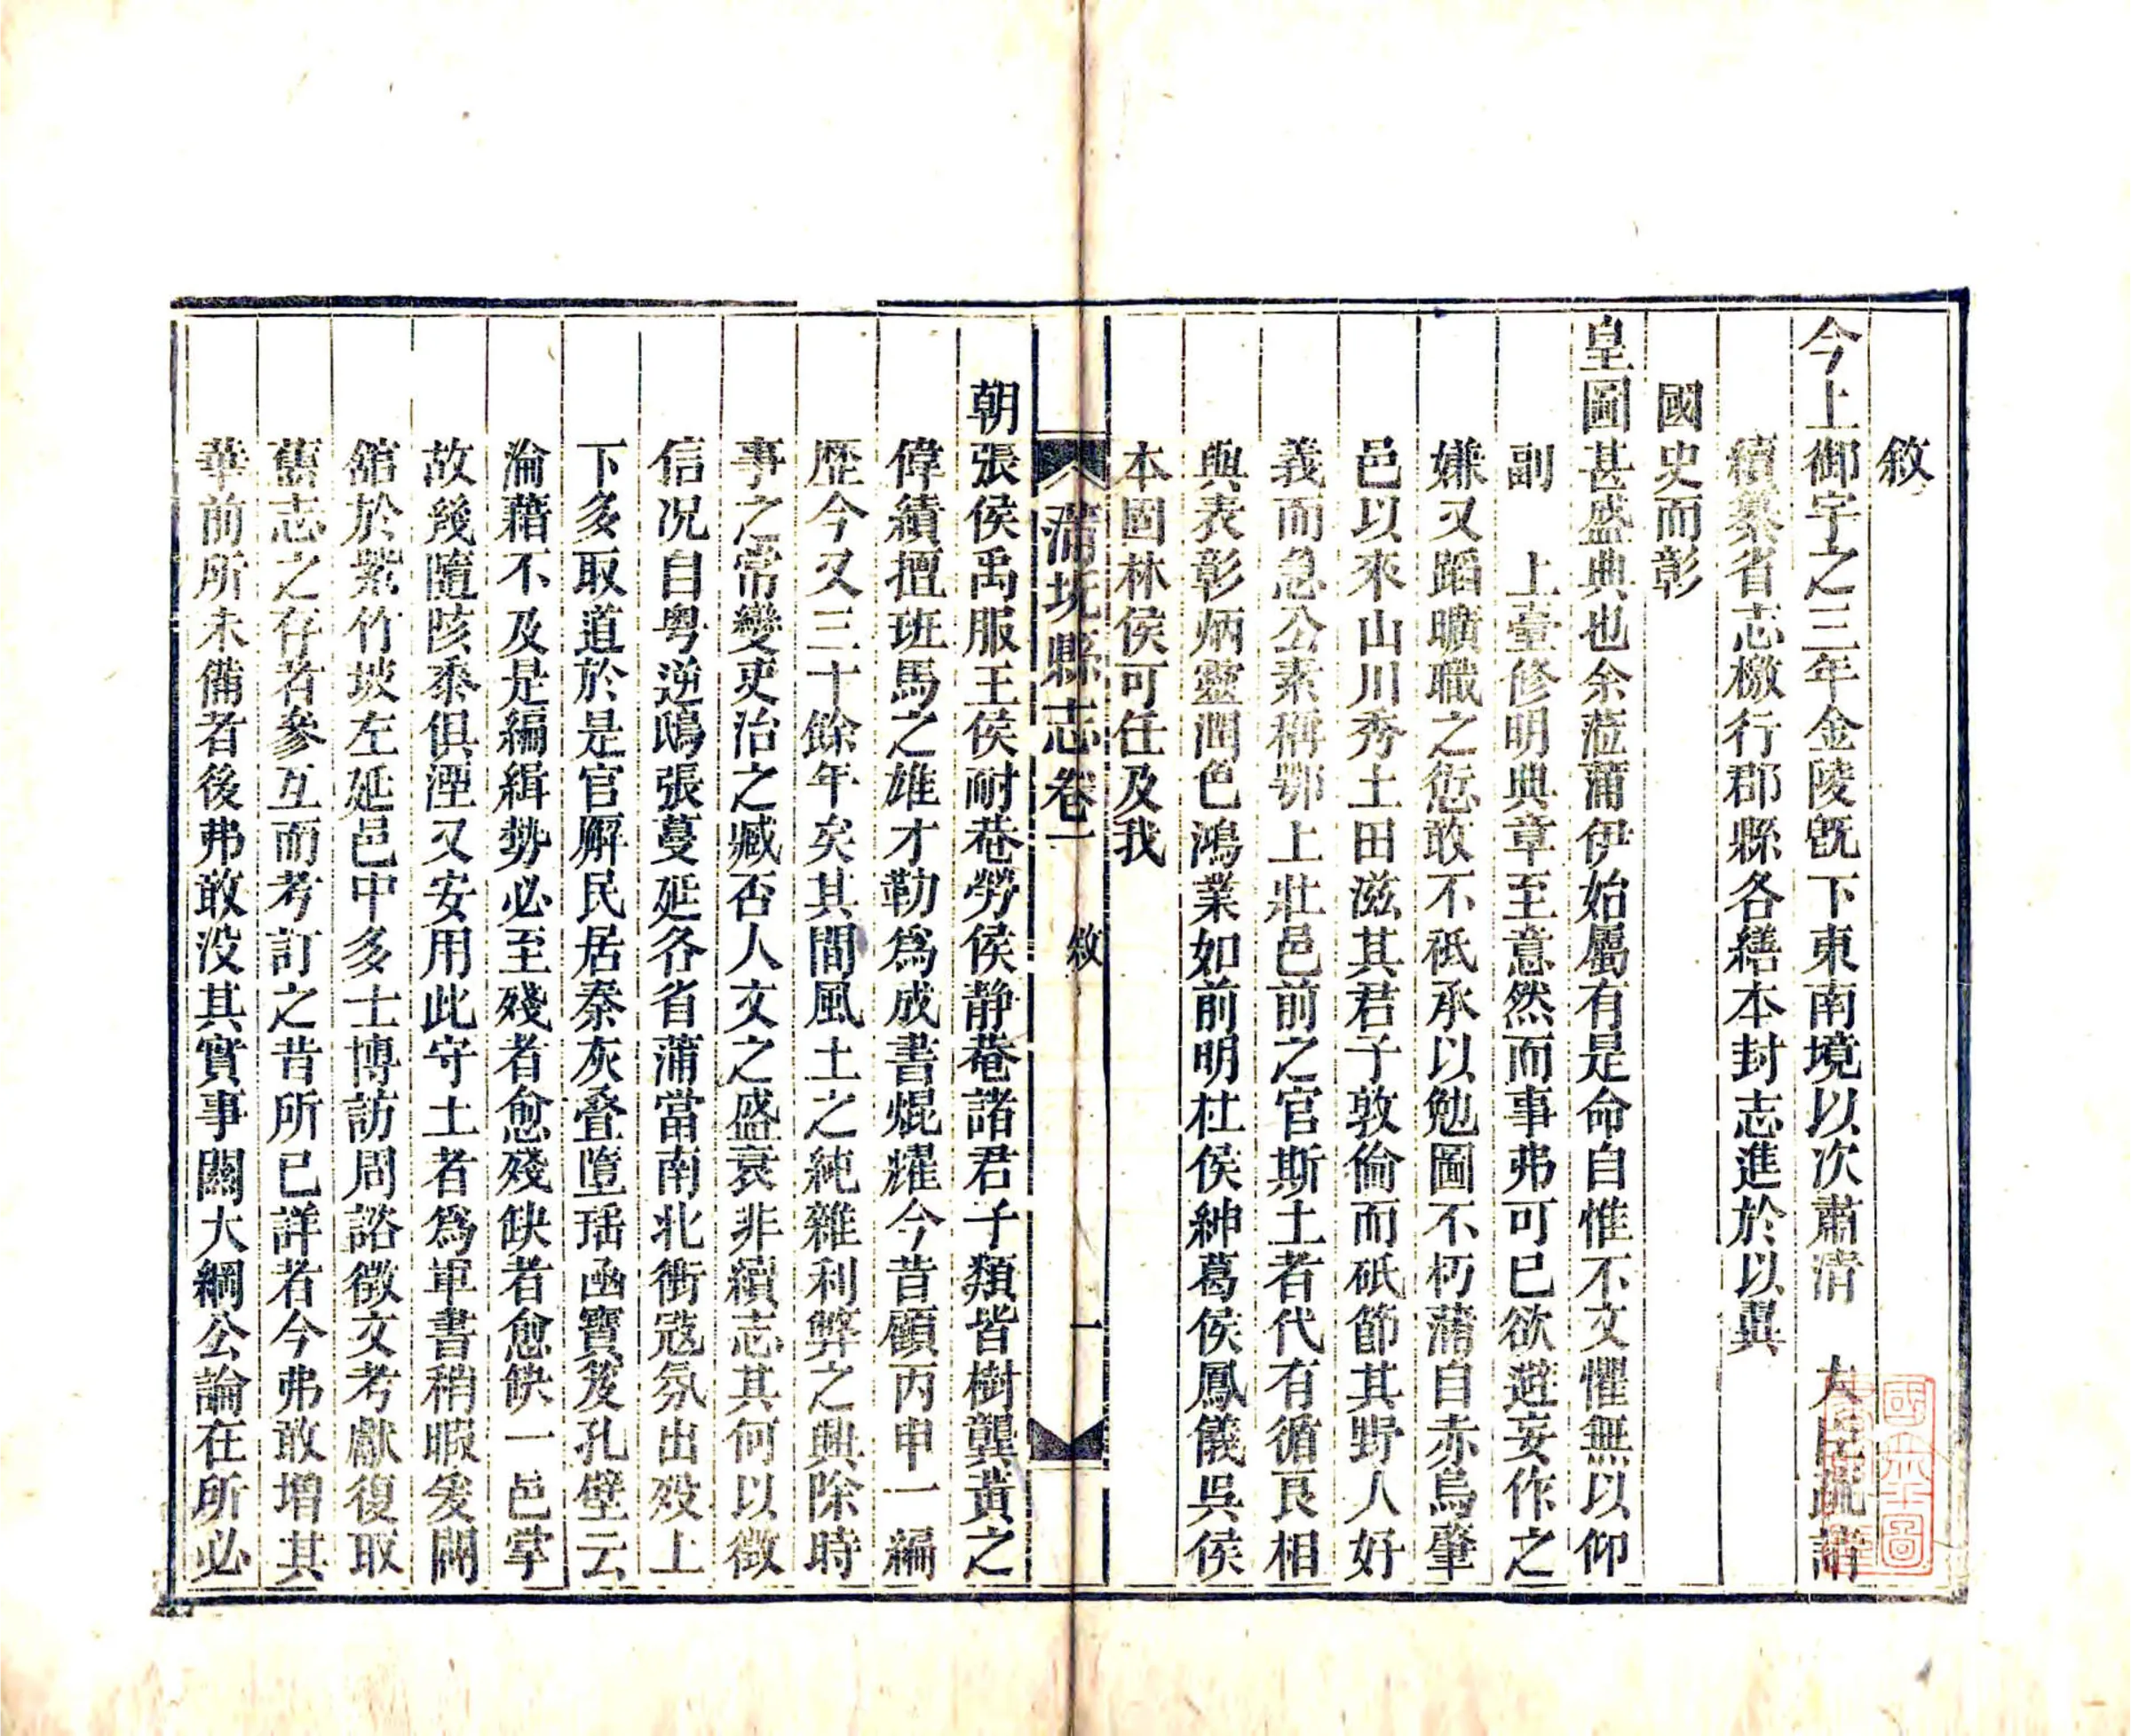 敘
今上御宇之三年金陵旣下東南境以次肅清　大臣疏請
續纂省志檄行郡縣各繕本封志進於以異
國史而彰
皇圖甚盛典也余蒞蒲伊始屬有是命自惟不文懼無以仰
副　上臺修明典章至意然而事弗可已欲避妄作之
嫌又蹈曠職之愆敢不祗承以勉圖不朽蒲自赤烏肇
邑以來山川秀土田滋其君子敦倫而砥節其野人好
義而急公素稱鄂上壯邑前之官斯土者代有循良相
與表彰炳靈潤色鴻業如前明杜侯紳葛侯鳳儀吳侯
本固林侯可任及我
蒲圻縣志卷一　敘　一
朝張侯禹服王侯耐菴勞侯靜菴諸君子類皆樹龔黃之
偉績擅班馬之雄才勒爲成書焜燿今昔顧丙申一編
歷今又三十餘年矣其間風土之純雜利弊之興除時
事之常變吏治之臧否人文之盛衰非續志其何以徵
信况自粤逆鴟張蔓延各省蒲當南北衝寇氛出歿上
下多取道於是官廨民居秦灰叠墮瑶函寶笈孔壁云
淪藉不及是編緝勢必至殘者愈殘缺者愈缺一邑掌
故幾隨陔黍俱湮又安用此守土者爲軍書稍暇爰闢
舘於紫竹坡左延邑中多士博訪周諮徵文考獻復取
舊志之存者參互而考訂之昔所已詳者今弗敢增其
華前所未備者後弗敢没其實事關大綱公論在所必